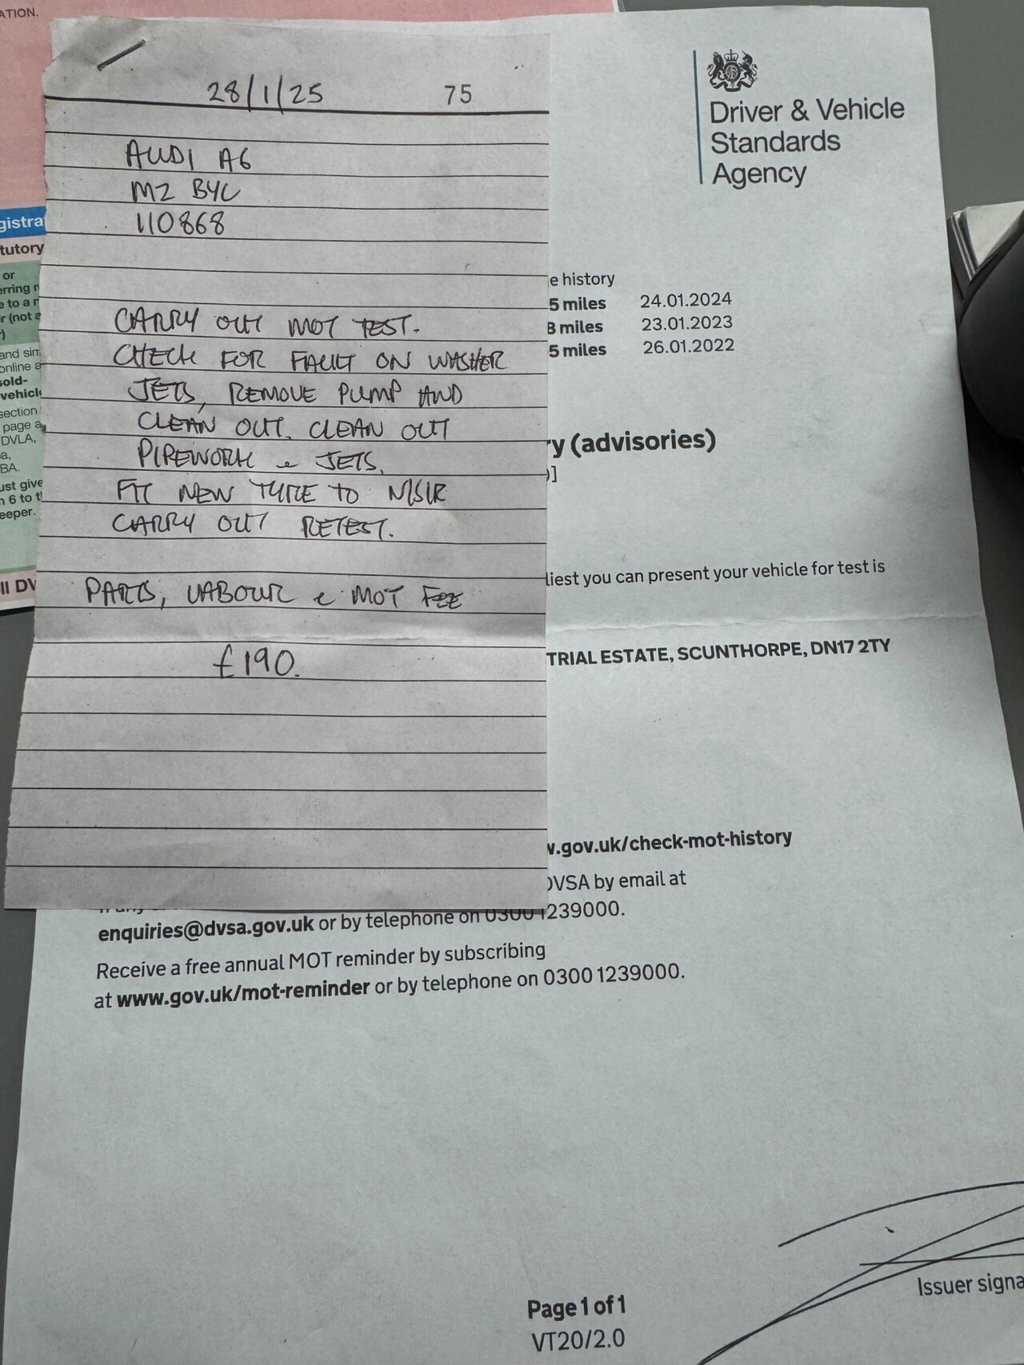 ATION.
28/1/25 75
AUDI A6
M2 BYC
110868
CARRY OUT MOT TEST.
CHECK FOR FAULT ON WASHER
JETS, REMOVE PUMP AND
CLEAN OUT. CLEAN OUT
PIPEWORK & JETS.
FIT NEW TYRE TO N/S/R
CARRY OUT RETEST.
PARTS, LABOUR & MOT FEE
£190.
Driver & Vehicle
Standards
Agency
e history
5 miles 24.01.2024
8 miles 23.01.2023
5 miles 26.01.2022
y (advisories)
)]
liest you can present your vehicle for test is
TRIAL ESTATE, SCUNTHORPE, DN17 2TY
w.gov.uk/check-mot-history
DVSA by email at
enquiries@dvsa.gov.uk or by telephone on 0300 1239000.
Receive a free annual MOT reminder by subscribing
at www.gov.uk/mot-reminder or by telephone on 0300 1239000.
Page 1 of 1
VT20/2.0
Issuer signa
gistra
tutory
or
erring
e to a
r (not a
)
and sim
online a
sold-
vehicl
section
page a
DVLA,
a,
BA.
ust give
n 6 to t
eeper.
II DV